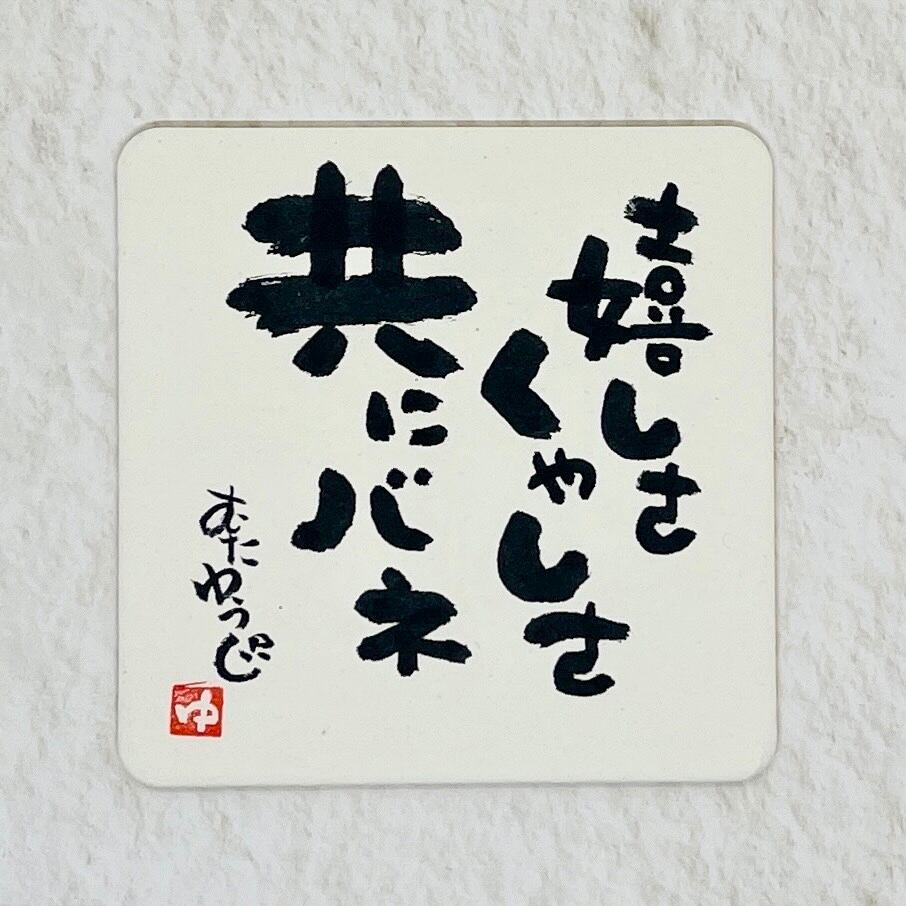 嬉しさ
くやしさ
共にバネ
むたゆうじ
ゆ